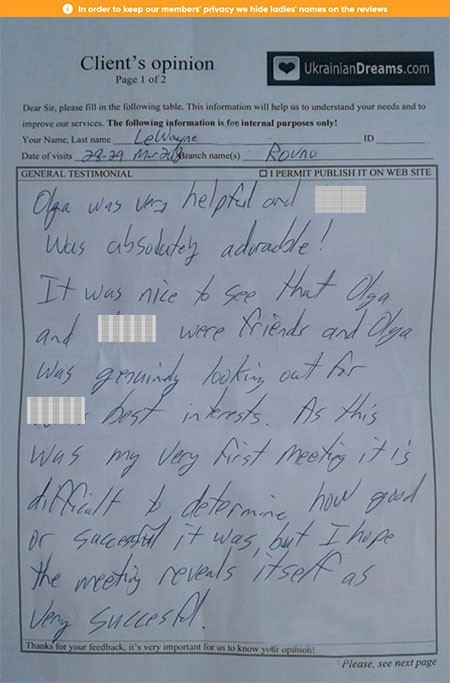 In order to keep our members' privacy we hide ladies' names on the reviews
Client's opinion
Page 1 of 2
UkrainianDreams.com
Dear Sir, please fill in the following table. This information will help us to understand your needs and to
improve our services. The following information is foe internal purposes only!
Your Name, Last name LeWayne ID
Date of visits 28-29 Branch name(s) Rovno
GENERAL TESTIMONIAL I PERMIT PUBLISH IT ON WEB SITE
Olga was very helpful and
was absolutely adoradble!
It was nice to see that Olga
and were friends and Olga
was genuinely looking out for
best interests. As this
was my very first meeting it is
difficult to determine how good
or successful it was, but I hope
the meeting reveals itself as
very succesful.
Thanks for your feedback, it's very important for us to know your opinion!
Please, see next page